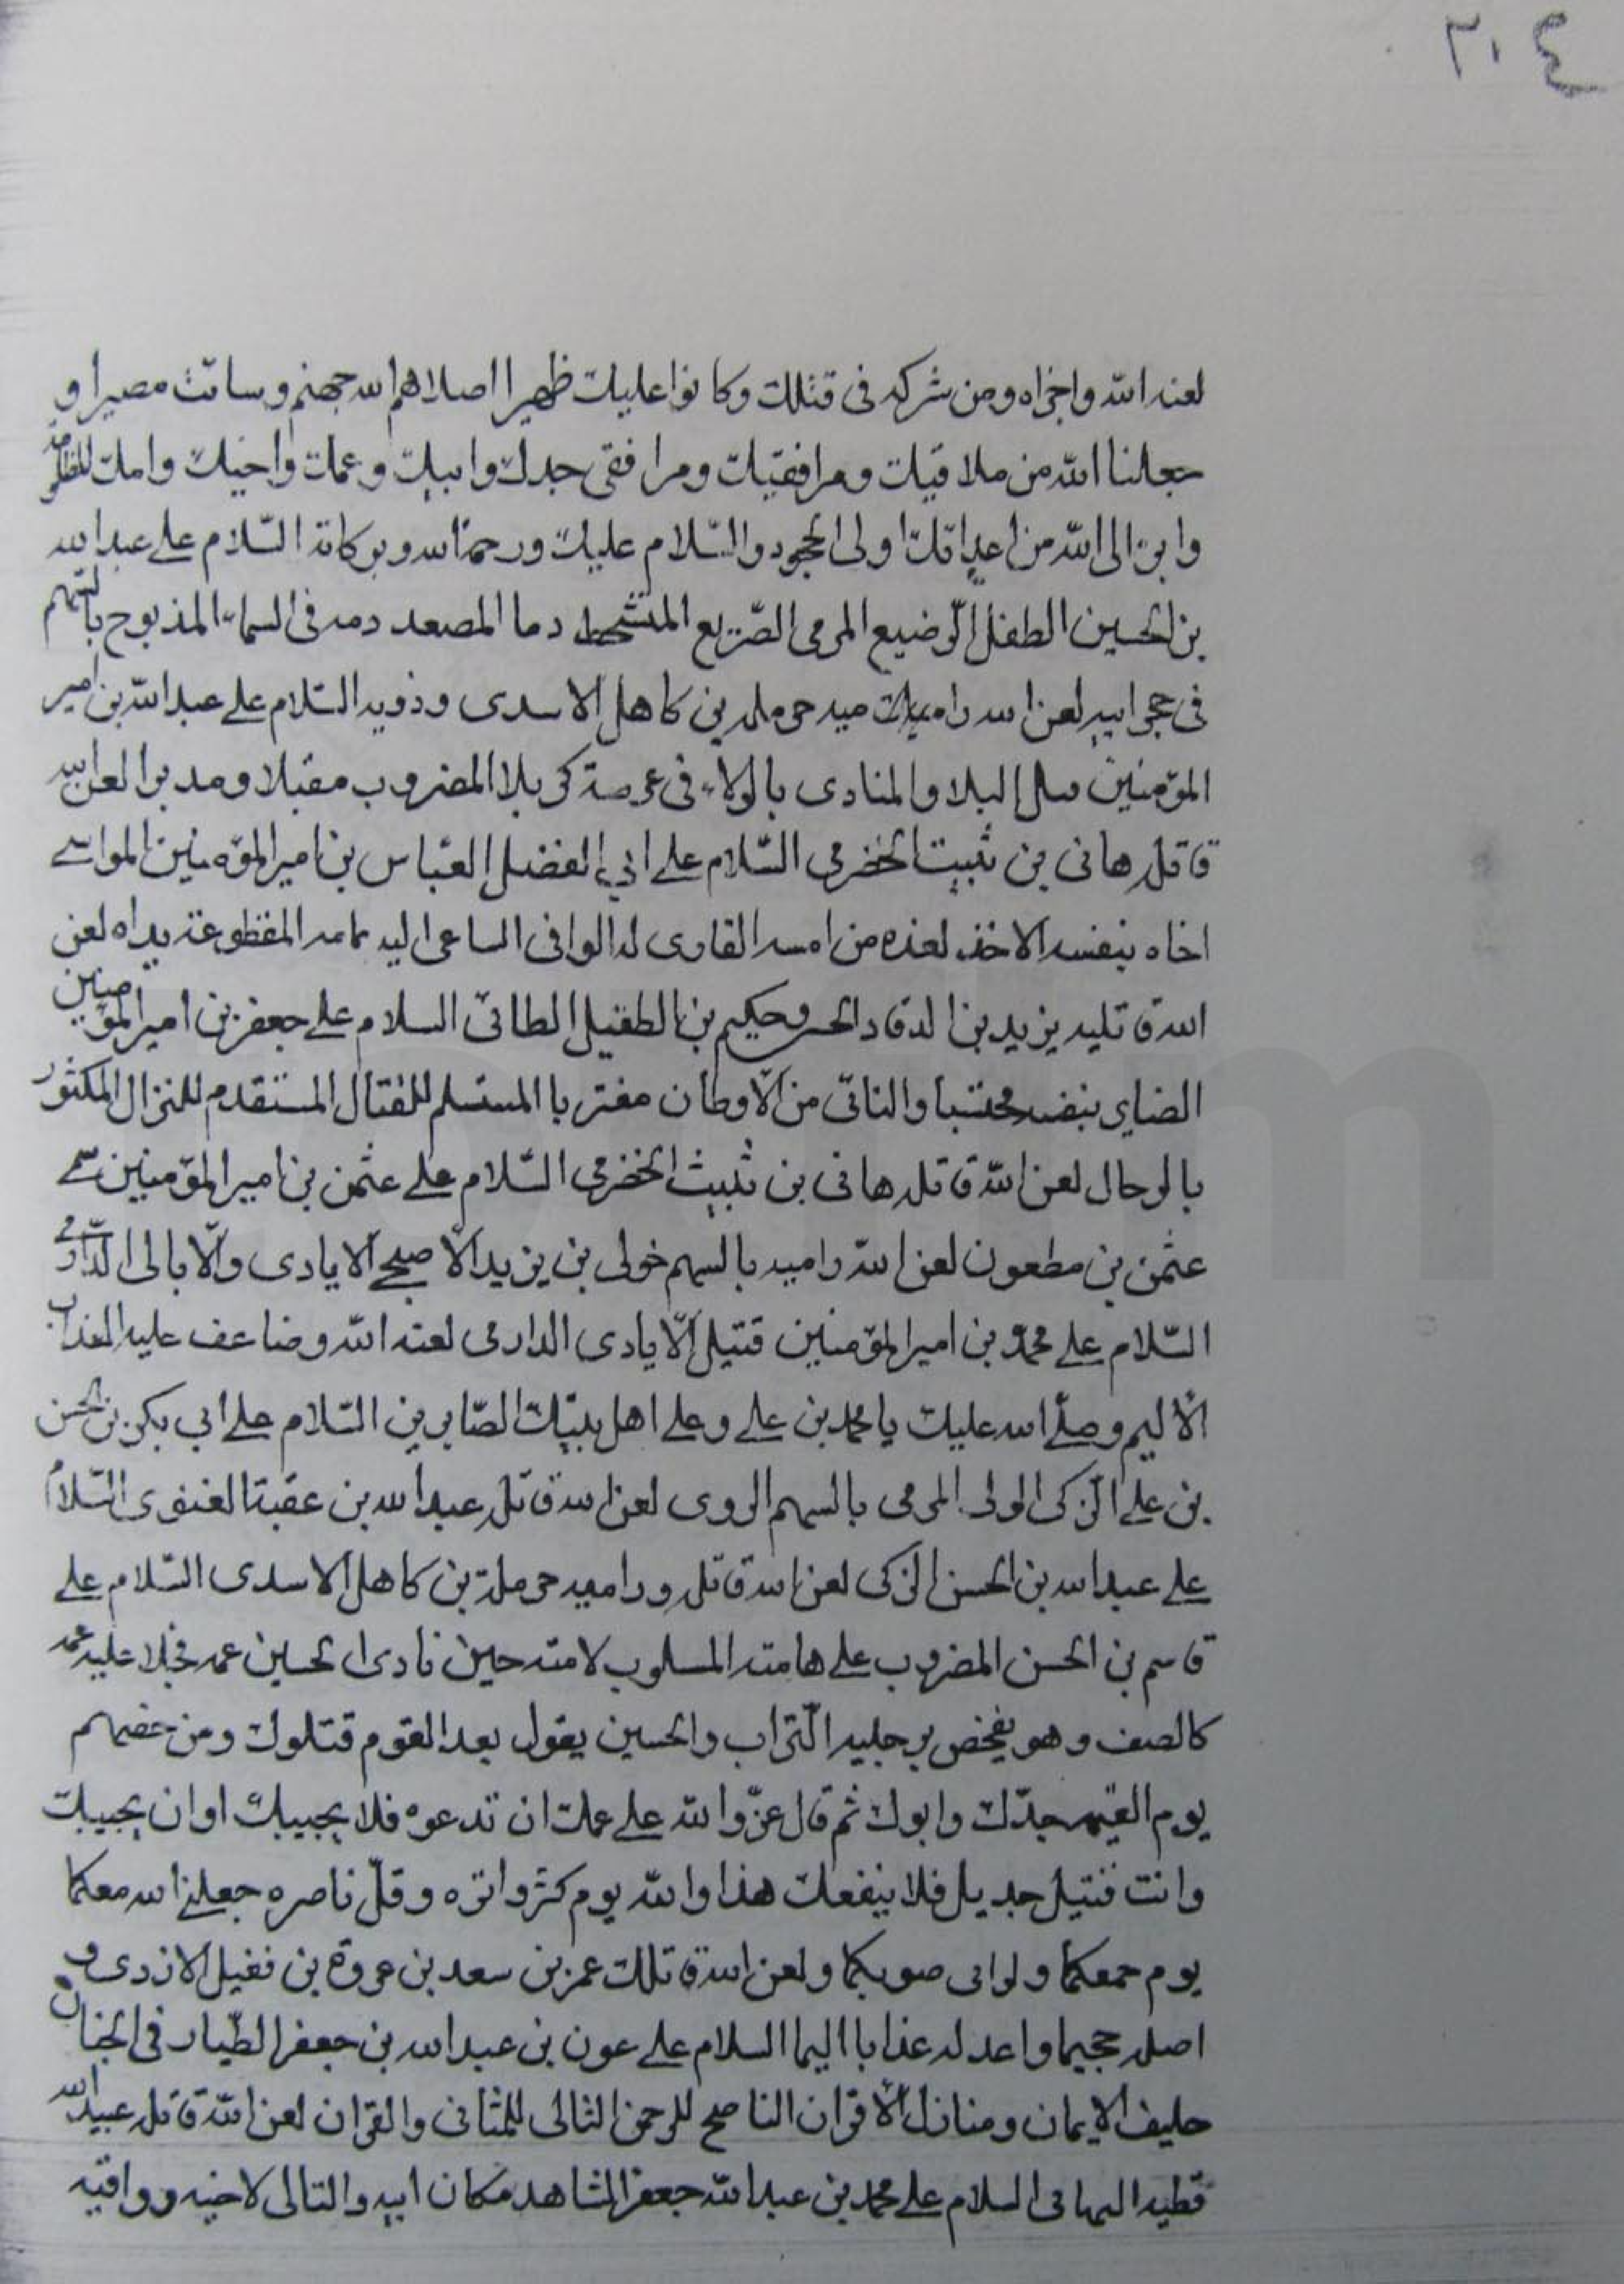 ٣٠٤
لعنه الله واخزاه ومن شركه فى قتلك وكانوا عليك ظهيرا اصلاهم الله جهنم وسائت مصيرا و
جعلنا الله من ملاقيك ومرافقيك ومرافقى جدك وابيك وعمك واخيك وامك المظلومة
وابرء الى الله من اعدائك اولى الجحود والسّلام عليك ورحمة الله وبركاته السّلام على عبدالله
بن الحسين الطفل الرّضيع المرمى الصّريع المتشحط دما المصعد دمه فى السماء المذبوح بالسّهم
فى حجر ابيه لعن الله راميه حرمله بن كاهل الاسدى وذويه السّلام على عبدالله بن امير
المؤمنين البلا والمنادى بالولاء فى عرصة كربلا المضروب مقبلا ومدبرا لعن الله
قاتله هانى بن ثبيت الخضرمى السّلام على ابى الفضل العبّاس بن امير المؤمنين المواسى
اخاه بنفسه الاخذ لغده من امسه الفادى له الوافى الساعى اليه بمائه المقطوعة يداه لعن
الله قاتليه يزيد بن الدقاد وحكيم بن الطفيل الطائى السلام على جعفر بن امير المؤمنين
الصابر بنفسه محتسبا والنائى من الاوطان مغتربا المستسلم للقتال المستقدم للنزال المكثور
بالرحال لعن الله قاتله هانى بن ثبيث الخضرمى السّلام على عثمن بن امير المؤمنين سمى
عثمن بن مطعون لعن الله راميه بالسهم خولى بن يزيد الاصبحى الايادى والابانى الدّارمى
السّلام على محمد بن امير المؤمنين قتيل الايادى الدارمى لعنه الله وضاعف عليه العذاب
الاليم وصلّى الله عليك يا محمد بن على وعلى اهل بيتك الصّابرين السّلام على ابى بكر بن الحسن
بن على الزكى الولى المرمى بالسهم الروى لعن الله قاتله عبدالله بن عقبة الغنوى السّلام
على عبدالله بن الحسن الزكى لعن الله قاتله وراميه حرملة بن كاهل الاسدى السّلام على
قاسم بن الحسن المضروب على هامته المسلوب لامته حين نادى الحسين عمه فجلا عليه عمه
كالصقر وهو يفحص برجليه التّراب والحسين يقول بعدا لقوم قتلوك ومن خصمهم
يوم القيمه جدّك وابوك ثم قال عزّ والله على عمك ان تدعوه فلا يجيبك او ان يجيبك
وانت قتيل جديل فلا ينفعك هذا والله يوم كثر واتره وقلّ ناصره جعلنى الله معكما
يوم جمعكما وبوانى مبوئكما ولعن الله قاتلك عمر بن سعد بن عروة بن نفيل الازدى و
اصله جحيما واعد له عذابا اليما السلام على عون بن عبدالله بن جعفر الطّيار فى الجنان
حليف الايمان ومنازل الاقران الناصح للرحمن التالى للمثانى والقران لعن الله قاتله عبدالله
قطيه البهانى السلام على محمد بن عبدالله جعفر الشاهد مكان ابيه والتالى لاخيه وواقيه